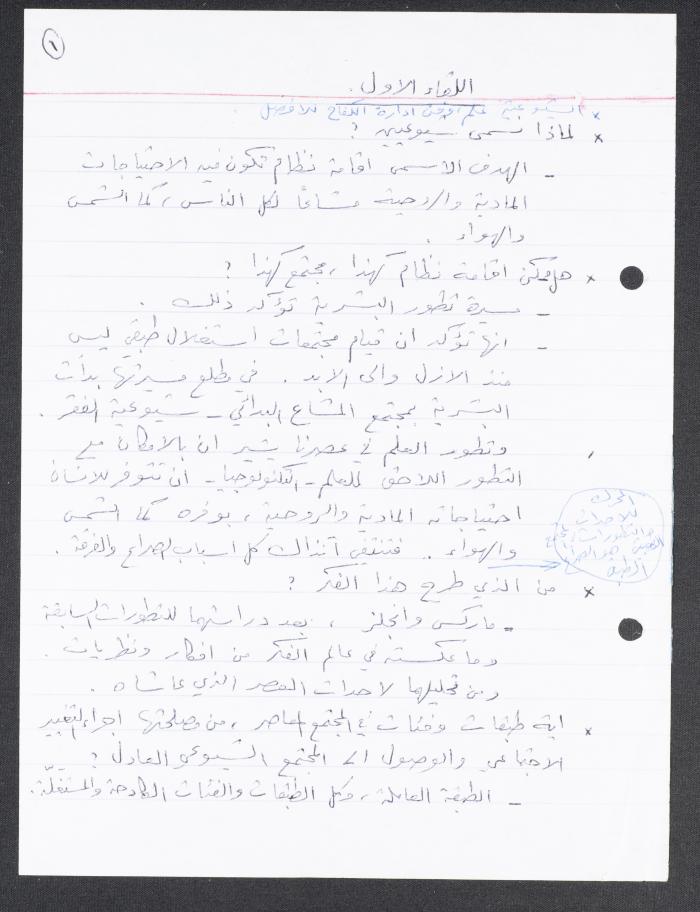 ١
اللقاء الاول.
× الشيوعية علم وفن ادارة الكفاح للافضل.
× لماذا نسمى شيوعيين ؟
ـ الهدف الاسمى اقامة نظام تكون فيه الاحتياجات
المادية والروحية مشاعًا لكل الناس، كما الشمس
والهواء.
× هل ممكن اقامة نظام كهذا، مجتمع كهذا ؟
ـ مسيرة تطور البشرية تؤكد ذلك.
ـ انها تؤكد ان قيام مجتمعات استغلال طبقي ليس
منذ الازل والى الابد. في مطلع مسيرتها بدأت
البشرية بمجتمع المشاع البدائي ـ شيوعية الفقر.
وتطور العلم في عصرنا يشير ان بالامكان مع
التطور اللاحق للعلم ـ التكنولوجيا ـ ان تتوفر للانسان
احتياجاته المادية والروحية، بوفره كما الشمس
والهواء. فتنتفي آنذاك كل اسباب الصراع والفرقة.
المحرك
للاحداث
والتطورات
هو الصراع
الطبقي
× من الذي طرح هذا الفكر ؟
ـ ماركس وانجلز، بعد دراستهما للتطورات السابقة
وما عكسته في عالم الفكر من افكار ونظريات.
ومن تحليلهما لاحداث العصر الذي عاشاه.
× اية طبقات وفئات في المجتمع المعاصر، من مصلحتها اجراء التغيير
الاجتماعي والوصول الى المجتمع الشيوعي العادل ؟
ـ الطبقة العاملة، وكل الطبقات والفئات الكادحة والمستغَلّة.